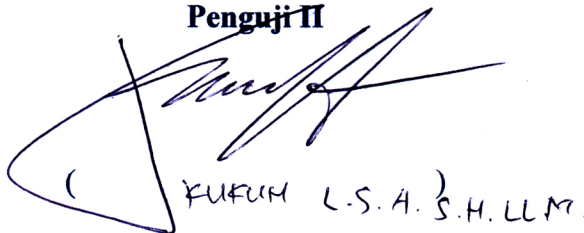 Penguji II
( KUKUH L.S.A. ) S.H. LLM.